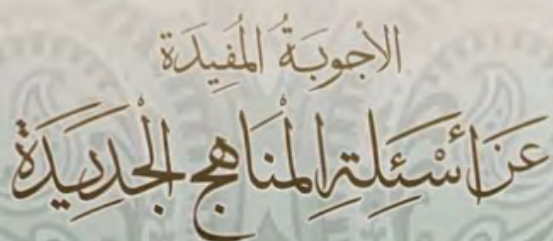 الأَجوبَةُ المُفِيدَة
عَن أَسْئِلَةِ المْنَاهج الْجَدِيدَةْ